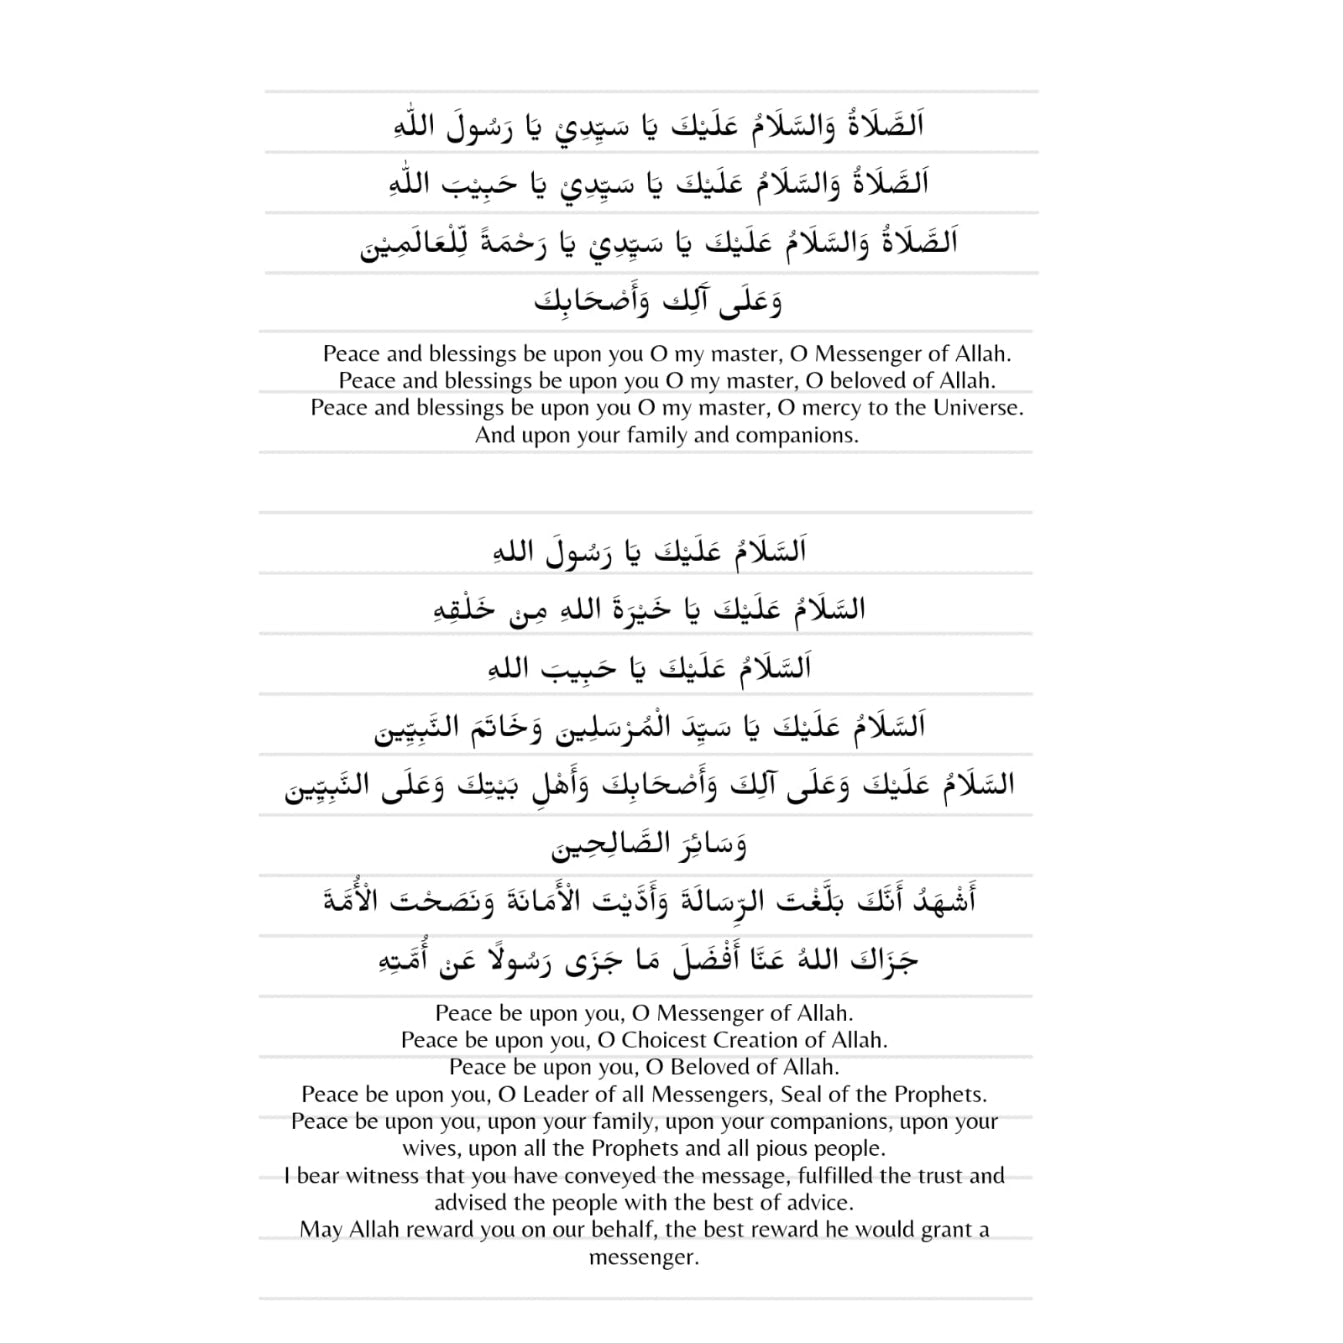 اَلصَّلَاةُ وَالسَّلَامُ عَلَيْكَ يَا سَيِّدِيْ يَا رَسُولَ اللّٰهِ
اَلصَّلَاةُ وَالسَّلَامُ عَلَيْكَ يَا سَيِّدِيْ يَا حَبِيْبَ اللّٰهِ
اَلصَّلَاةُ وَالسَّلَامُ عَلَيْكَ يَا سَيِّدِيْ يَا رَحْمَةً لِّلْعَالَمِيْنَ
وَعَلَى آَلِك وَأَصْحَابِكَ
Peace and blessings be upon you O my master, O Messenger of Allah.
Peace and blessings be upon you O my master, O beloved of Allah.
Peace and blessings be upon you O my master, O mercy to the Universe.
And upon your family and companions.
اَلسَّلَامُ عَلَيْكَ يَا رَسُولَ اللهِ
السَّلَامُ عَلَيْكَ يَا خَيْرَةَ اللهِ مِنْ خَلْقِهِ
اَلسَّلَامُ عَلَيْكَ يَا حَبِيبَ اللهِ
اَلسَّلَامُ عَلَيْكَ يَا سَيِّدَ الْمُرْسَلِينَ وَخَاتَمَ النَّبِيِّينَ
السَّلَامُ عَلَيْكَ وَعَلَى آلِكَ وَأَصْحَابِكَ وَأَهْلِ بَيْتِكَ وَعَلَى النَّبِيِّينَ
وَسَائِرَ الصَّالِحِينَ
أَشْهَدُ أَنَّكَ بَلَّغْتَ الرِّسَالَةَ وَأَدَّيْتَ الْأَمَانَةَ وَنَصَحْتَ الْأُمَّةَ
جَزَاكَ اللهُ عَنَّا أَفْضَلَ مَا جَزَى رَسُولًا عَنْ أُمَّتِهِ
Peace be upon you, O Messenger of Allah.
Peace be upon you, O Choicest Creation of Allah.
Peace be upon you, O Beloved of Allah.
Peace be upon you, O Leader of all Messengers, Seal of the Prophets.
Peace be upon you, upon your family, upon your companions, upon your
wives, upon all the Prophets and all pious people.
I bear witness that you have conveyed the message, fulfilled the trust and
advised the people with the best of advice.
May Allah reward you on our behalf, the best reward he would grant a
messenger.